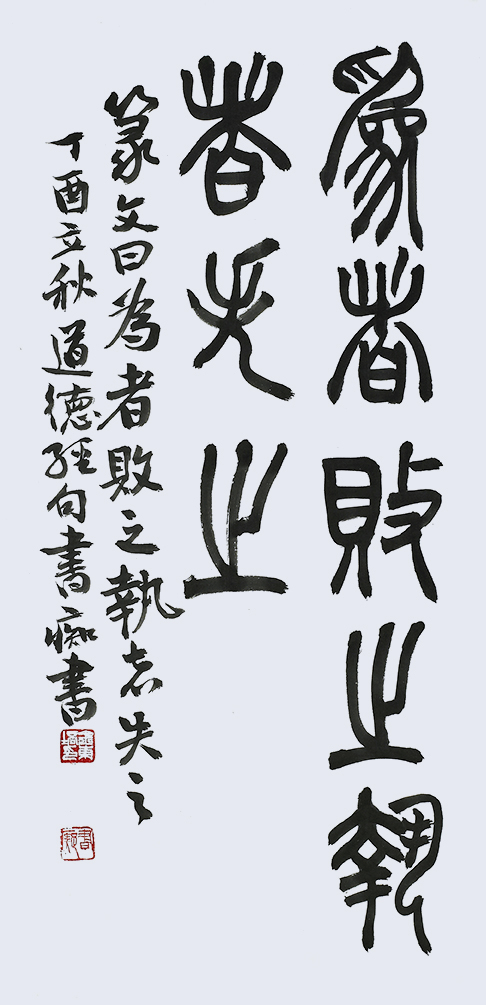 為者敗之執
者失之
篆文曰為者敗之執者失之
丁酉立秋道德經句書痴書